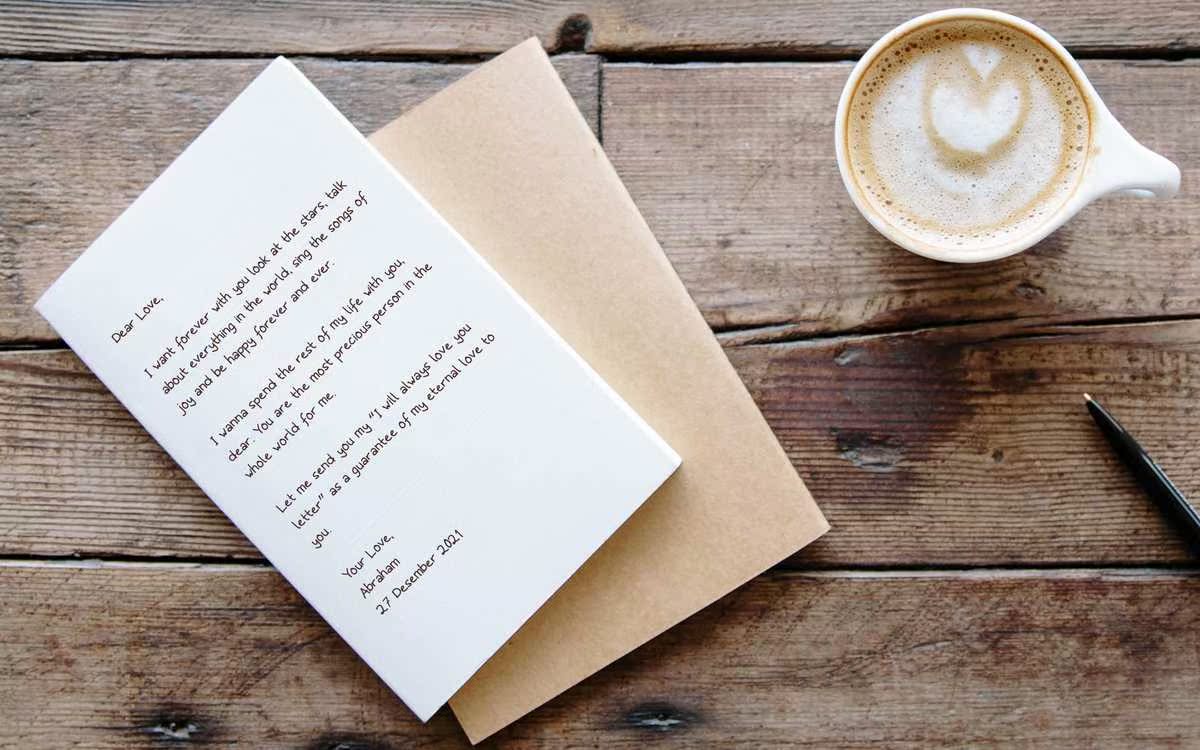 Dear Love,
I want forever with you look at the stars, talk
about everything in the world, sing the songs of
joy and be happy forever and ever.
I wanna spend the rest of my life with you,
dear. You are the most precious person in the
whole world for me.
Let me send you my "I will always love you
letter" as a guarantee of my eternal love to
you.
Your Love,
Abraham
27 Desember 2021